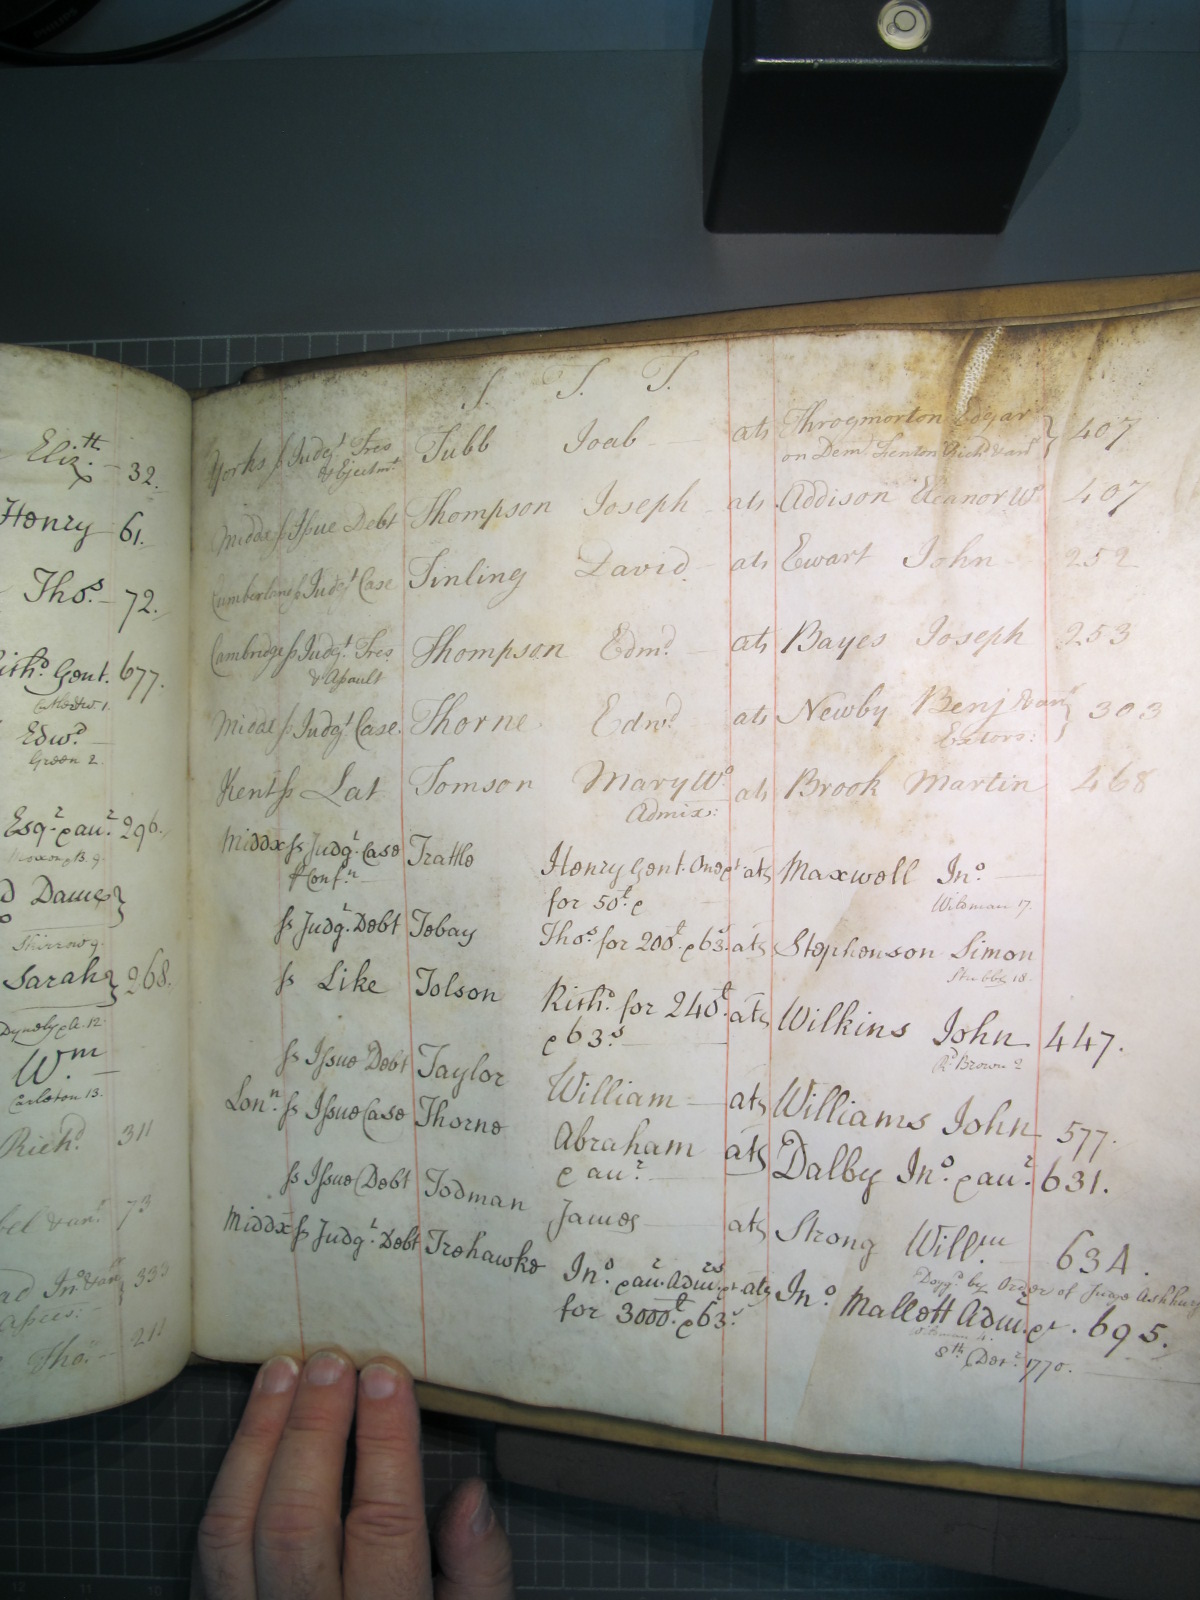 Eliz.th 32.
Henry 61.
Tho.s 72.
Rich.d Gent. 677.
Edw.d
Green 2
Esq.r & an.r 296.
d Dame
Skirrow 9.
Sarah 268.
W.m
Carleton 13.
Rich.d 311
bel & an.r 73
ad Jn.o & an.r 333
Tho.s 211
T. T. T.
Yorks ss Judg.t Tres Tubb Joab ats Throgmorton Edgar 407
& Ejectm.t on Dem. Fenton Rich.d & an.r
Middx ss Issue Debt Thompson Joseph ats Addison Eleanor W.o 407
Cumberland ss Judg.t Case Tinling David ats Ewart John 252
Cambridge ss Judg.t Tres Thompson Edm.d ats Bayes Joseph 253
& Assault
Middx ss Judg.t Case Thorne Edw.d ats Newby Benj & an.r 303
Exōrs:
Kent ss Lat Tomson Mary W.o ats Brook Martin 468
Admix:
Middx ss Judg.t Case Trattle Henry Gent. One &c ats Maxwell Jn.o
& Conf.n for 50.l & Wildman 17.
ss Judg.t Debt Tobay Tho.s for 200.l & 63.s ats Stephenson Simon
Stubbs 18.
ss Like Tolson Rich.d for 240.l ats Wilkins John 447.
& 63.s R.d Brown 2
ss Issue Debt Taylor William ats Williams John 577.
Lon.n ss Issue Case Thorne Abraham ats Dalby Jn.o & an.r 631.
& an.r
ss Issue Debt Todman James ats Strong Will.m 634.
Middx ss Judg.t Debt Trehawke Jn.o & an.r Adm.rs &c ats Jn.o Mallett Adm.r &c. 695.
for 3000.l & 63.s
by Order of Judge Ashhurst
8.th Dec.r 1770.